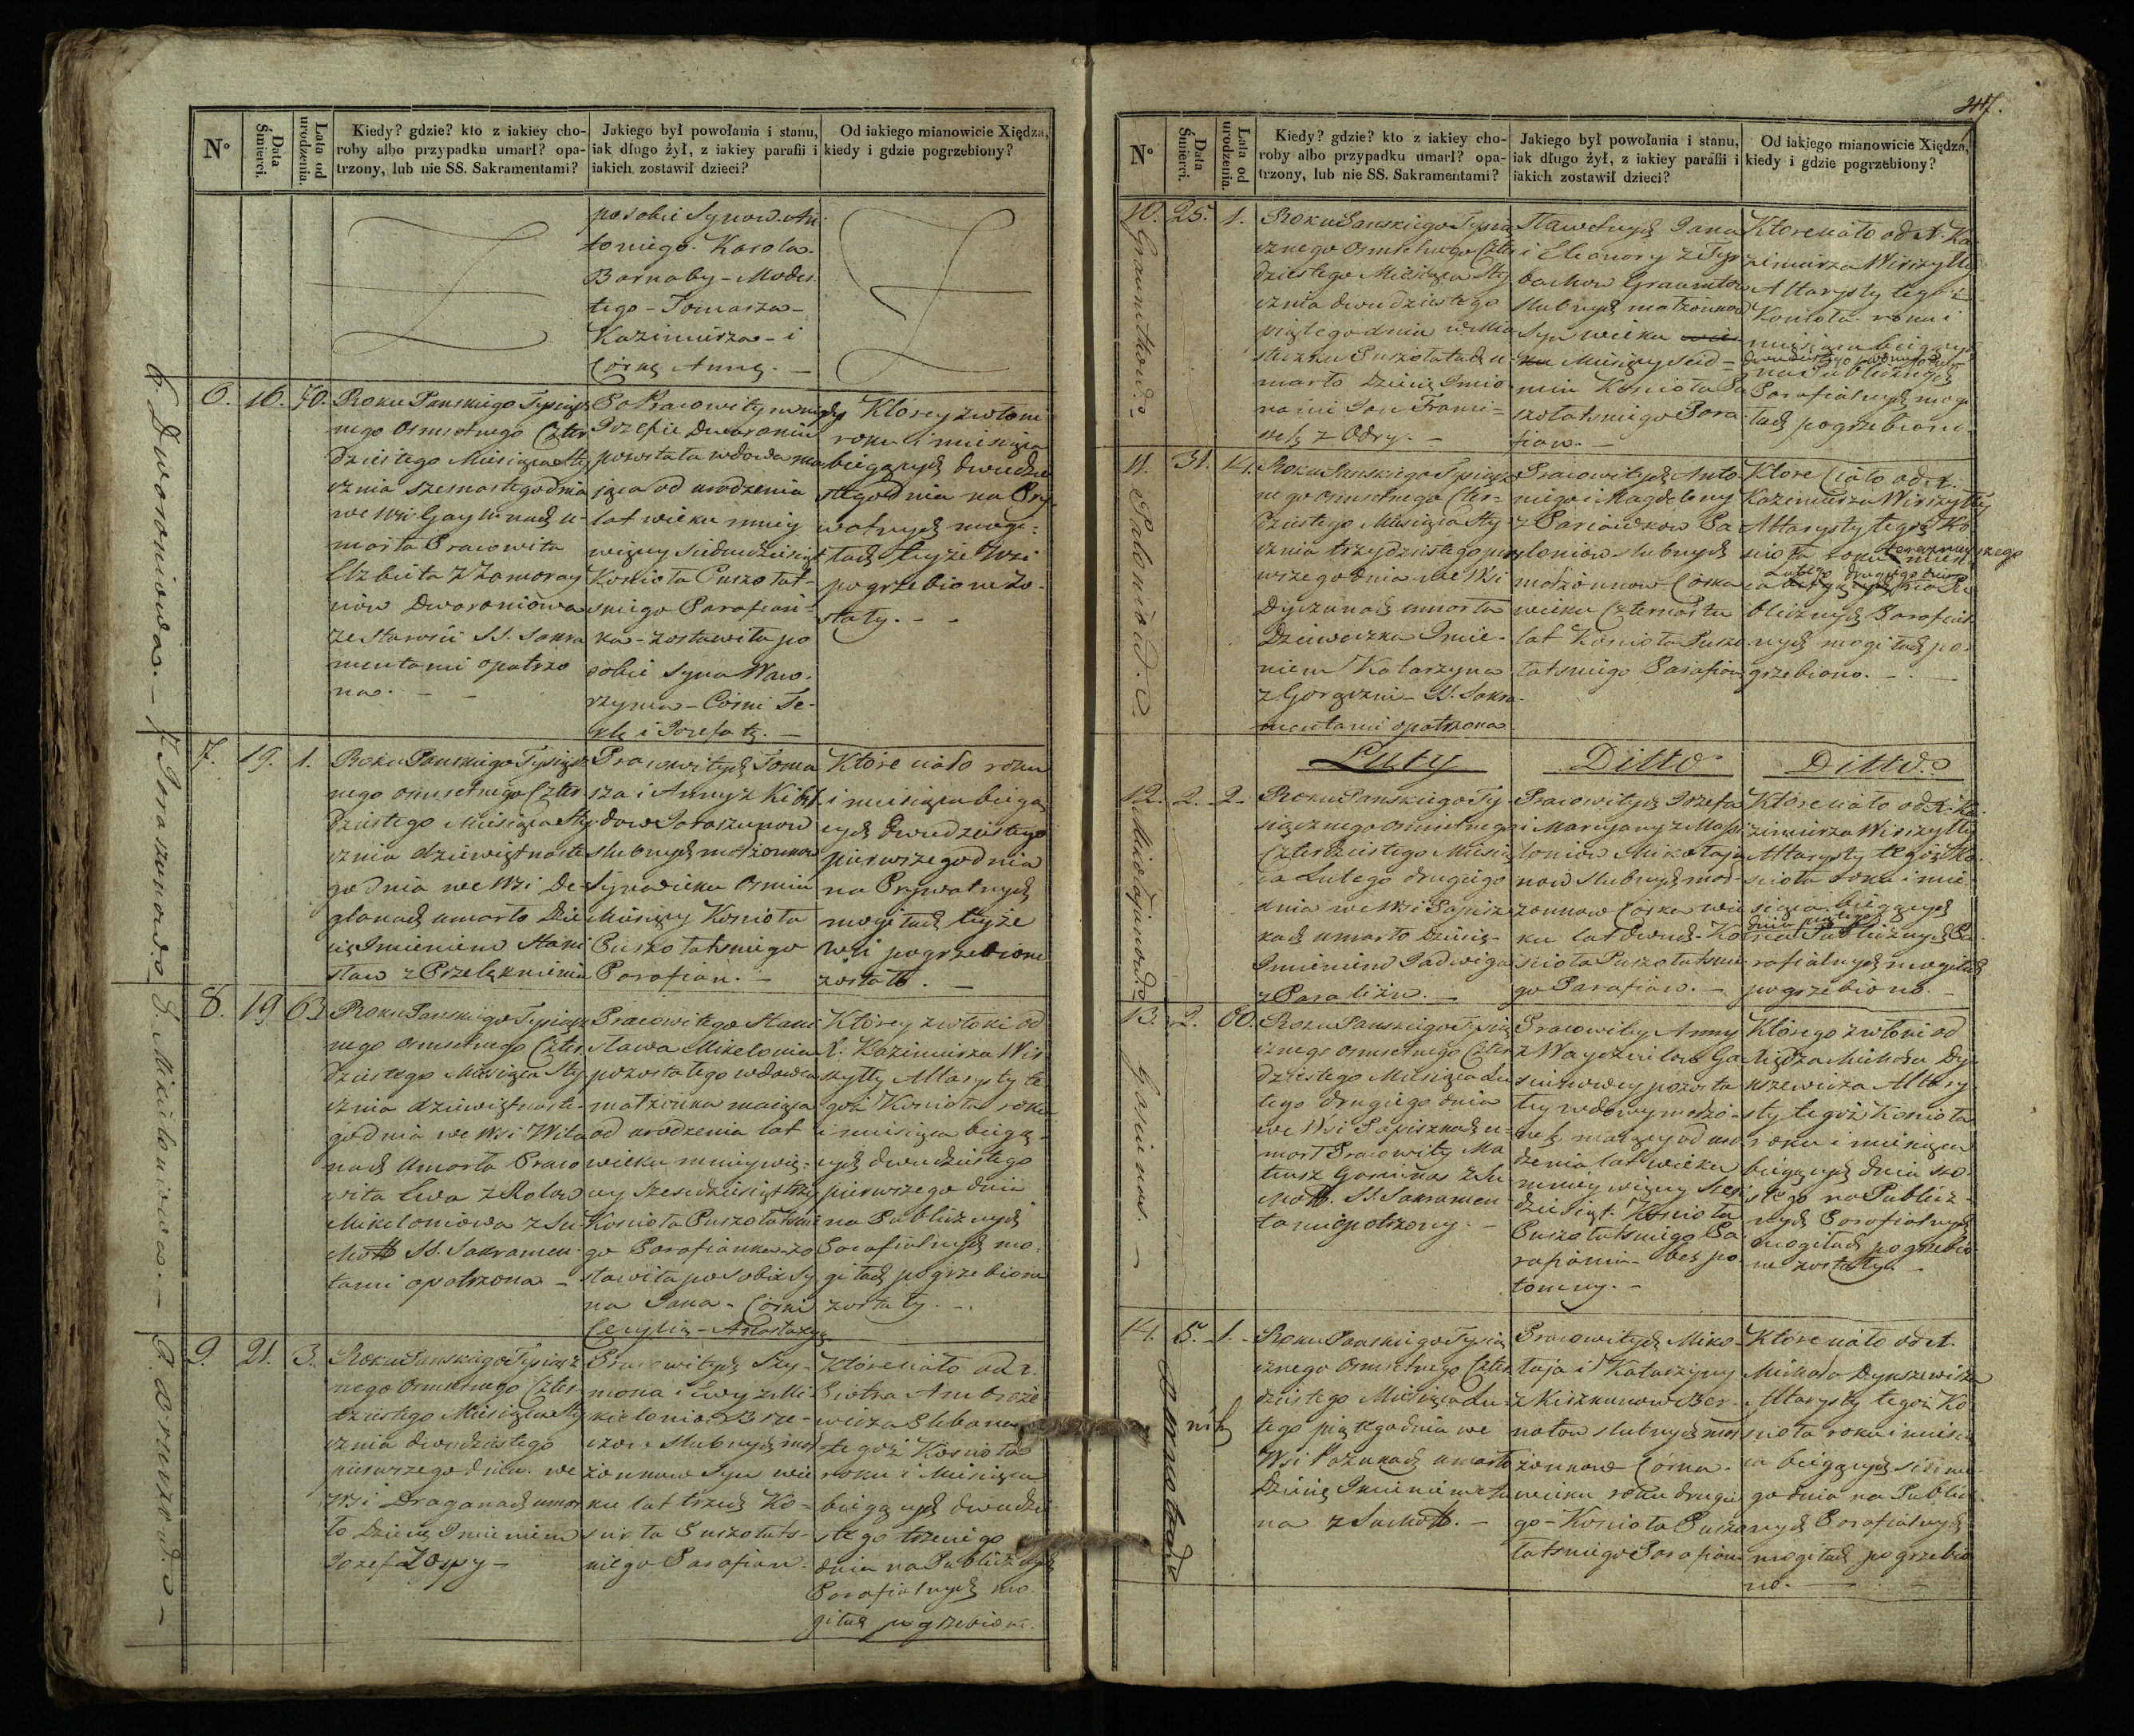 No
Data Śmierci.
Lata od urodzenia.
Kiedy? gdzie? kto z iakiey cho-
roby albo przypadku umarł? opa-
trzony, lub nie SS. Sakramentami?
Jakiego był powołania i stanu,
iak długo żył, z iakiey parafii i
iakich zostawił dzieci?
Od iakiego mianowicie Xiędza,
kiedy i gdzie pogrzebiony?
po sobie Synow. An-
toniego. Karola.
Barnaby - Modes
tego - Tomasza -
Kazimierza - i
Córkę Annę. -
6. Dworoniowa. -
6. 16. 70.
Roku Pańskiego Tysiącz
nego Osmsetnego Czter
dziestego Miesiąca Sty
cznia szesnastego dnia
we Wsi Gaylunach u-
marła Pracowita
Elżbieta
Dworoniowa
ze starości SS. Sakra
mentami opatrzo
na. -
Po Pracowitym niegdy
Jozefie Dworoniu
pozostała wdowa ma
jąca od urodzenia
lat wieku mniey
więcey siedmdziesiąt
Kościoła Puszołat-
skiego Parafian-
ka - zostawiła po
sobie Syna Waw-
rzyna - Córki Te-
klę i Jozefatę. -
Którey zwłoki
roku i miesiąca
bieżących dwudzie
stego dnia na Pry
watnych mogi-
łach teyże Wsi
pogrzebione zo-
stały. - -
7. 19. 1.
Roku Pańskiego Tysiącz
nego osmsetnego Czter
dziestego Miesiąca Sty
cznia dziewiętnaste
go dnia we Wsi De
glanach umarło Dzie
cię Imieniem Stani
sław z Przelęknienia
Pracowitych Toma
sza i Anny z
dow
slubnych małżonkow
Syn wieku Osmiu
Miesięcy Kościoła
Puszołatskiego
Parafian. -
Które ciało roku
i miesiąca bieżą
cych dwudziestego
pierwszego dnia
na Prywatnych
mogiłach teyże
Wsi pogrzebione
zostało. -
8. Mikieloniowa. -
8. 19. 63
Roku Pańskiego Tysiącz
nego osmsetnego Czter
dziestego Miesiąca Sty
cznia dziewiętnaste-
go dnia we Wsi Wila
nach Umarła Praco
wita Ewa z
Mikeloniowa z Su
chot SS. Sakramen-
tami opatrzona -
Pracowitego Stani
sława Mikelonia
pozostałego wdowca
małżonka maiąca
od urodzenia lat
wieku mniey wię-
cey szescdziesiąt trzy
Kościoła Puszołatskie
go Parafianka zo
stawiła po sobie Sy
na Jana - Córki
Cecylią - Anastazyą
Którey zwłoki od
X. Kazimierza Wir
szyłły Altarysty te
goż Kościoła roku
i miesiąca bieżą-
cych dwudziestego
pierwszego dnia
na Publicznych
Parafialnych mo-
giłach pogrzebione
zostały. -
9. 21. 3.
Roku Pańskiego Tysiącz
nego Osmsetnego Czter-
dziestego Miesiąca Sty
cznia dwudziestego
pierwszego dnia we
Wsi Draganach umar
ło Dziecię Imieniem
Jozef z Ospy -
Pracowitych Szy-
mona i Ewy z Mi
kielonio
slubnych mał
żonkow Syn wie
ku lat trzech Ko-
scioła Puszołats-
kiego Parafian.
Które ciało od X.
Piotra
Plebana
tegoż Kościoła
roku i Miesiąca
bieżących dwudzie
stego trzeciego
dnia na Publicznych
Parafialnych mo-
giłach pogrzebione.
No
Data Śmierci.
Lata od urodzenia.
Kiedy? gdzie? kto z iakiey cho-
roby albo przypadku umarł? opa-
trzony, lub nie SS. Sakramentami?
Jakiego był powołania i stanu,
iak długo żył, z iakiey parafii i
iakich zostawił dzieci?
Od iakiego mianowicie Xiędza,
kiedy i gdzie pogrzebiony?
10. 25. 1.
Roku Pańskiego Tysią
cznego Osmsetnego Czter
dziestego Miesiąca Sty
cznia dwudziestego
piątego dnia w Mia
steczku Puszołatach u-
marło Dziecię Imio
nami Jan Franci-
szek z Odry. -
Sławetnych Jana
i Eleonory z
slubnych małżonkow
Syn wieku
Miesięcy sied-
miu Kościoła Pu
szołatskiego Para
fian. -
Które ciało od X. Ka
zimierza Wirszyłły
Altarysty tegoż
Kościoła roku i
miesiąca bieżących
dwudziestego
na Publicznych
Parafialnych mogi
łach pogrzebiono.
11. 31. 14.
Roku Pańskiego Tysiącz
nego Osmsetnego Czter-
dziestego Miesiąca Sty
cznia trzydziestego pier
wszego dnia we Wsi
umarła
Dzieweczka Imie-
niem Katarzyna
z Gorączki - SS. Sakra-
mentami opatrzona
Pracowitych Anto
niego i Magdaleny
slubnych
małżonkow Córka
wieku Czternastu
lat Kościoła Puszo
łatskiego Parafian
Które Ciało od X.
Kazimierza Wirszyłły
Altarysty tegoż Ko
scioła roku teraznieyszego
Lutego drugiego dnia
na Pu
blicznych Parafial
nych mogiłach po-
grzebiono. -
Luty Ditto Ditto
12. 2. 2.
Roku Pańskiego Ty-
siącznego Osmsetnego
Czterdziestego Miesią
ca Lutego drugiego
dnia we Wsi Sapisz
kach umarło Dziecię
Imieniem Jadwiga
z Paraliżu. -
Pracowitych Jozefa
i Maryanny z
Mikołaju
now slubnych mał-
żonkow Córka wie
ku lat dwuch - Ko
scioła Puszołatskie
go Parafian. -
Które ciało od X. Ka
zimierza Wirszyłły
Altarysty tegoż Ko-
scioła roku i mie-
siąca bieżących
dnia piątego
na Publicznych Pa-
rafialnych mogiłach
pogrzebiono. -
13. Gasiunas. -
13. 2. 60.
Roku Pańskiego Tysią
cznego Osmsetnego Czter
dziestego Miesiąca Lu
tego drugiego dnia
we Wsi Sapiszkach u-
marł Pracowity Ma
teusz Gasiunas z Su
chot. SS. Sakramen-
tami opatrzony. -
Pracowitey Anny
z Ga
siunowey pozosta
łey wdowy małżo-
nek maiący od uro
dzenia lat wieku
mniey więcey szesć
dziesiąt. Kościoła
Puszołatskiego Pa-
rafianin - bez po-
tomny. -
Którego zwłoki od
Xiędza Michała Dy-
kszewicza Altary-
sty tegoż Kościoła
roku i miesiąca
bieżących dnia szo-
stego na Publicz-
nych Parafialnych
mogiłach pogrzebio
ne zostały. -
14. 5. 1.
Roku Pańskiego Tysią
cznego Osmsetnego Czter
dziestego Miesiąca Lu-
tego piątego dnia we
Wsi umarło
Dziecię Imieniem An
na z Suchot. -
Pracowitych Miko
łaja i Katarzyny
z Ber-
natow slubnych mał
żonkow Córka -
wieku roku drugie
go - Kościoła Puszo
łatskiego Parafian
Które ciało od X.
Michała Dykszewicza
Altarysty tegoż Ko
scioła roku i miesią
ca bieżących siodme
go dnia na Public
nych Parafialnych
mogiłach pogrzebio
no. -